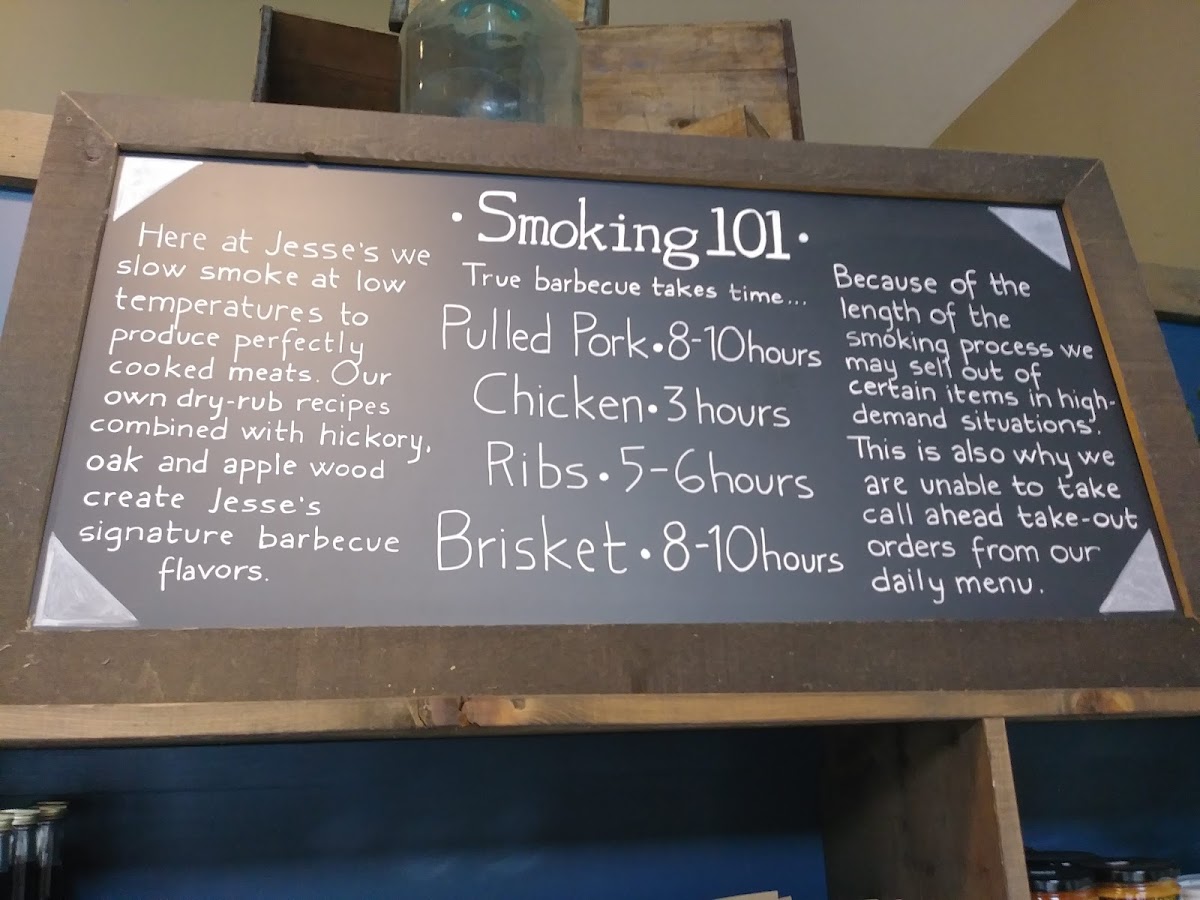 Here at Jesse's we
slow smoke at low
temperatures to
produce perfectly
cooked meats. Our
own dry-rub recipes
combined with hickory,
oak and apple wood
create Jesse's
signature barbecue
flavors.
· Smoking 101 ·
True barbecue takes time...
Pulled Pork · 8-10 hours
Chicken · 3 hours
Ribs · 5-6 hours
Brisket · 8-10 hours
Because of the
length of the
smoking process we
may sell out of
certain items in high-
demand situations.
This is also why we
are unable to take
call ahead take-out
orders from our
daily menu.